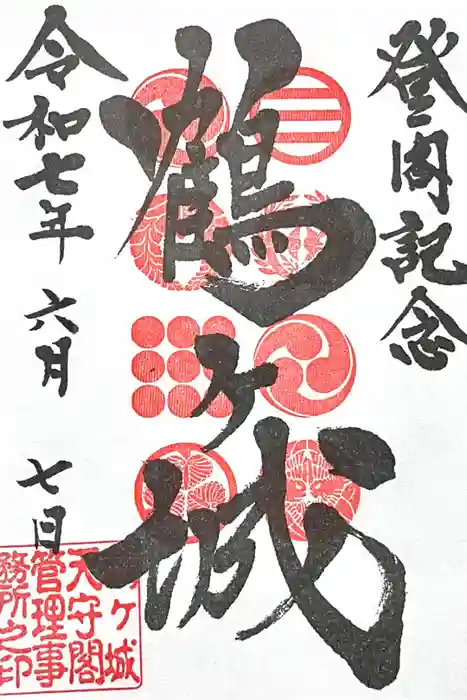 登閣記念
鶴ヶ城
令和七年 六月 七日
ヶ城
天守閣
管理事
務所之印